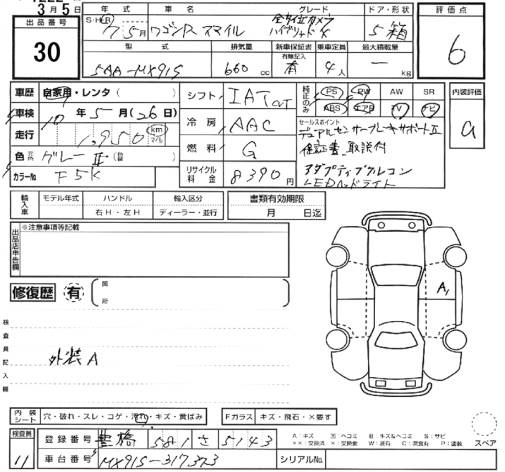 3月5日
出品番号
30
年式 車名 グレード ドア・形状
S・H・R 7年 5月 ワゴンR スマイル 全方位カメラ ハイブリッドX 5 箱
型式 排気量 新車保証書 有無記入 乗車定員 最大積載量
5AA-MX91S 660 cc 有 4人 ー kg
評価点
6
車歴 自家用・レンタ
車検 10年5月(26日)
走行 1,950 km mile
色 グレーⅡ
カラーNo F5K
シフト IAT CVT
冷房 AAC
燃料 G
リサイクル料金 8390円
純正のみ PS PW AW SR
ABS エアB TV ナビ
セールスポイント
デュアルセンサーブレーキサポートⅡ
保証書、取説付
アダプティブクルコン
LEDヘッドライト
内装評価
a
輸入車 モデル年式 ハンドル 輸入区分 書類有効期限
年 右H・左H ディーラー・並行 月 日迄
出品店申告欄
※注意事項等記載
修復歴 有
箇所
検査員記入欄
外装A
A1
内装シート 穴・破れ・スレ・コゲ・汚れ・キズ・黄ばみ
Fガラス キズ・飛石・×要す
検査員
11
登録番号 豊橋 581 さ 5143
車台番号 MX91S-317373
シリアルNo.
A:キズ U:ヘコミ B:キズ&ヘコミ S:サビ
××:交換済 ×:交換要 W:波有 C:腐食有 P:塗装
スペア